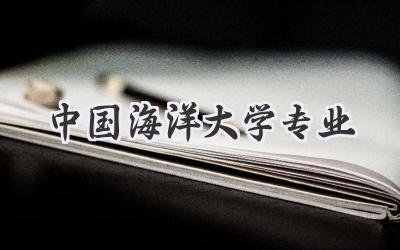 中国海洋大学专业